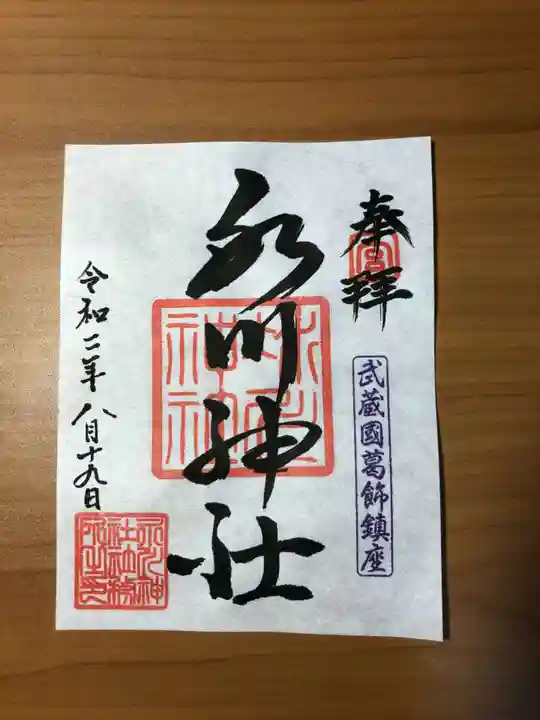 奉拝
武蔵國葛飾鎮座
氷川神社
令和二年八月十九日